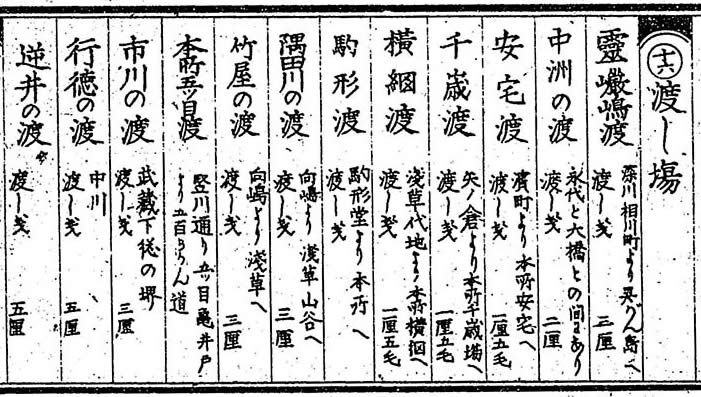 十六 渡し場
靈巖嶋渡
深川相川町より灵がん島へ
渡し賃 三厘
中洲の渡
永代と大橋との間にあり
渡し賃 二厘
安宅渡
濱町より本所安宅へ
渡し賃 一厘五毛
千歳渡
矢ノ倉より本所千歳町へ
渡し賃 一厘五毛
横網渡
淺草代地より本所横網へ
渡し賃 一厘五毛
駒形渡
駒形堂より本所へ
渡し賃
隅田川の渡
向嶋より淺草山谷へ
渡し賃 三厘
竹屋の渡
向嶋より淺草へ
渡し賃 三厘
本所五ツ目渡
竪川通り五ツ目亀井戸
より五百らかん道
市川の渡
武藏下總の堺
渡し賃 三厘
行徳の渡
中川
渡し賃 五厘
逆井の渡
渡し賃 五厘